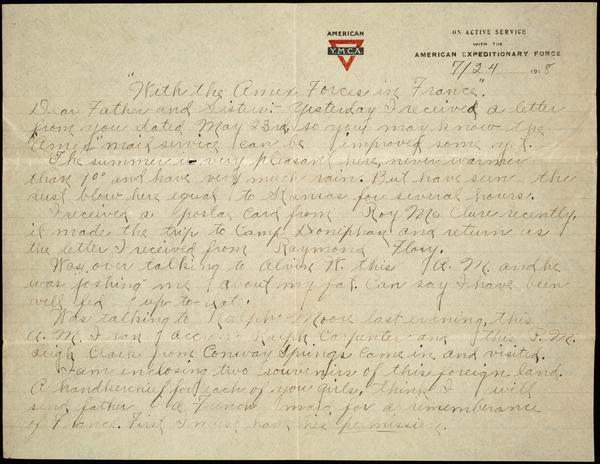 AMERICAN
Y.M.C.A.
ON ACTIVE SERVICE
WITH THE
AMERICAN EXPEDITIONARY FORCE
7/24 1918
"With the Amer. Forces in France".
Dear Father and Sisters:- Yesterday I received a letter
from you dated May 23rd, so you may know the
"Amex" mail service can be improved some yet.
The summer is very pleasant here, never warmer
than 90° and have very much rain. But have seen the
dust blow here equal to Kansas for several hours.
I received a postal card from Roy Mc Clure recently,
it made the trip to Camp Doniphan and return as
the letter I received from Raymond Flory.
Was over talking to Alvin W. this A.M. and he
was "joshing" me about my fat. Can say I have been
well fed up to dat.
Was talking to Ralph Moore last evening, this
A.M. I ran across Ralph Carpenter and this P.M.
Leigh Clark from Conway Springs came in and visited.
I am enclosing two souvenirs of this foreign land.
A handkerchief for each of you girls, think I will
send father a French maid for a rememberance
of France. First I must have his permission.